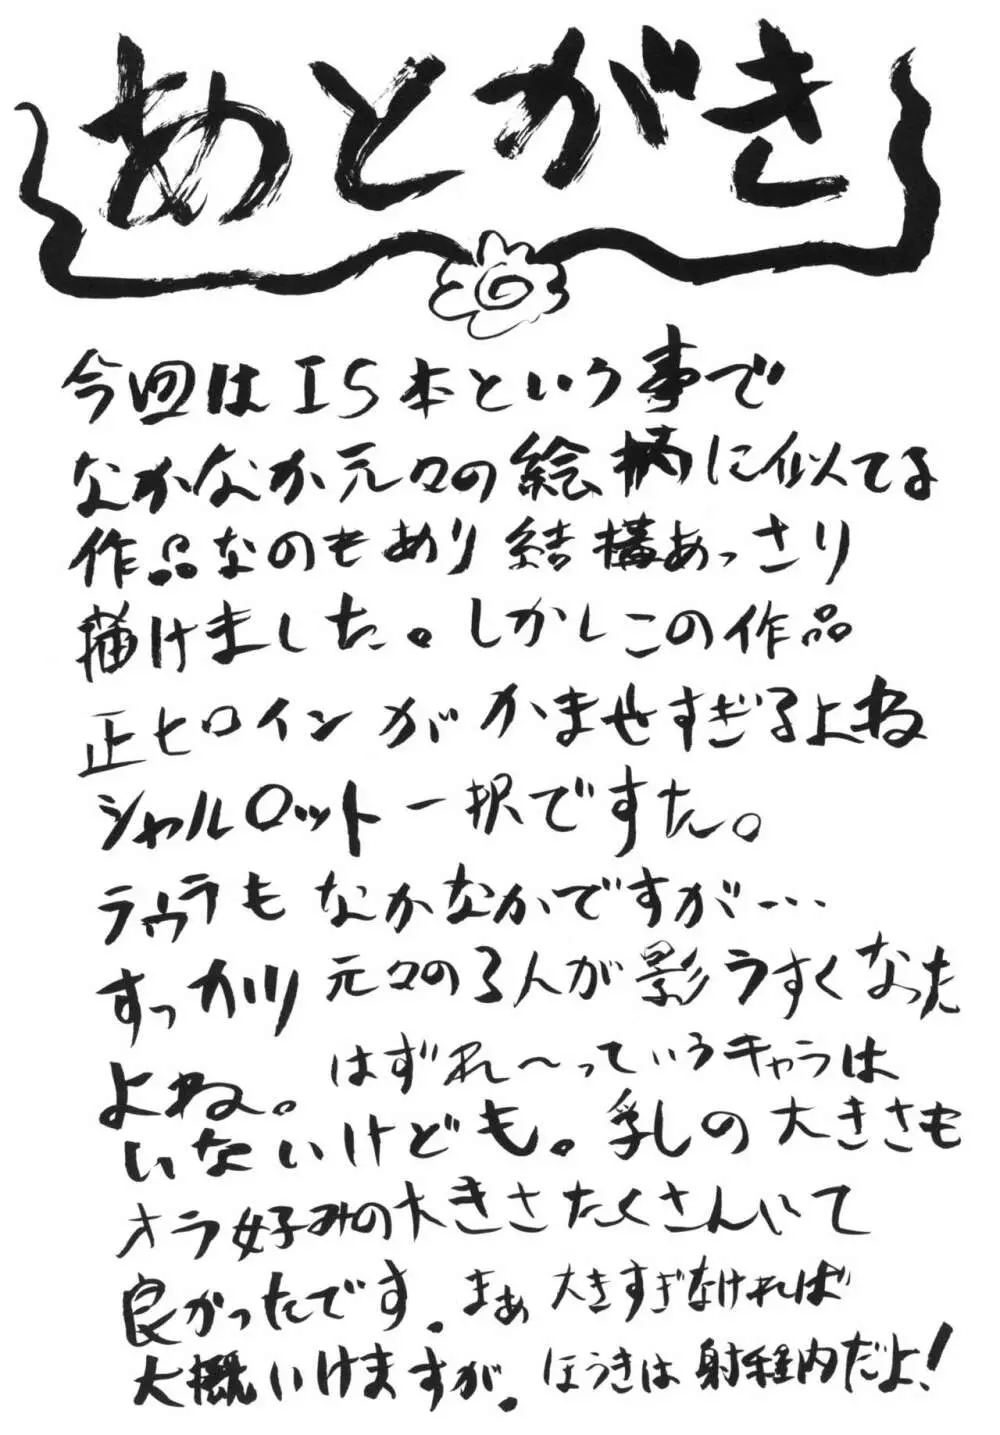 あとがき
今回はIS本という事で
なかなか元々の絵柄に似てる
作品なのもあり結構あっさり
描けました。しかしこの作品
正ヒロインがかませすぎるよね
シャルロット一択ですた。
ラウラもなかなかですが…
すっかり元々の3人が影うすくなった
よね。はずれ〜っていうキャラは
いないけども。乳の大きさも
オラ好みの大きさたくさんいて
良かったです.まぁ大きすぎなければ
大概いけますが.ほうきは射程内だよ!